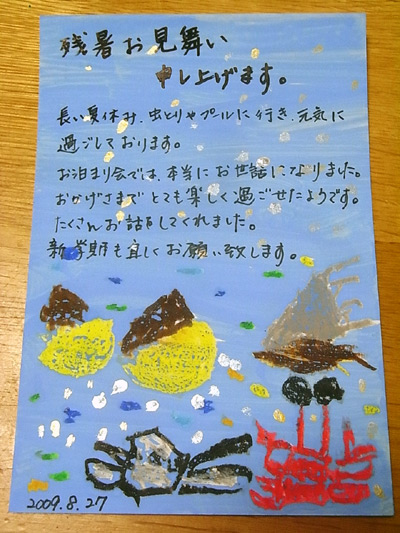 残暑お見舞い
申し上げます。
長い夏休み、虫とりやプールに行き、元気に
過ごしております。
お泊まり会では、本当にお世話になりました。
おかげさまでとても楽しく過ごせたようです。
たくさんお話をしてくれました。
新学期も宜しくお願い致します。
2009.8.27